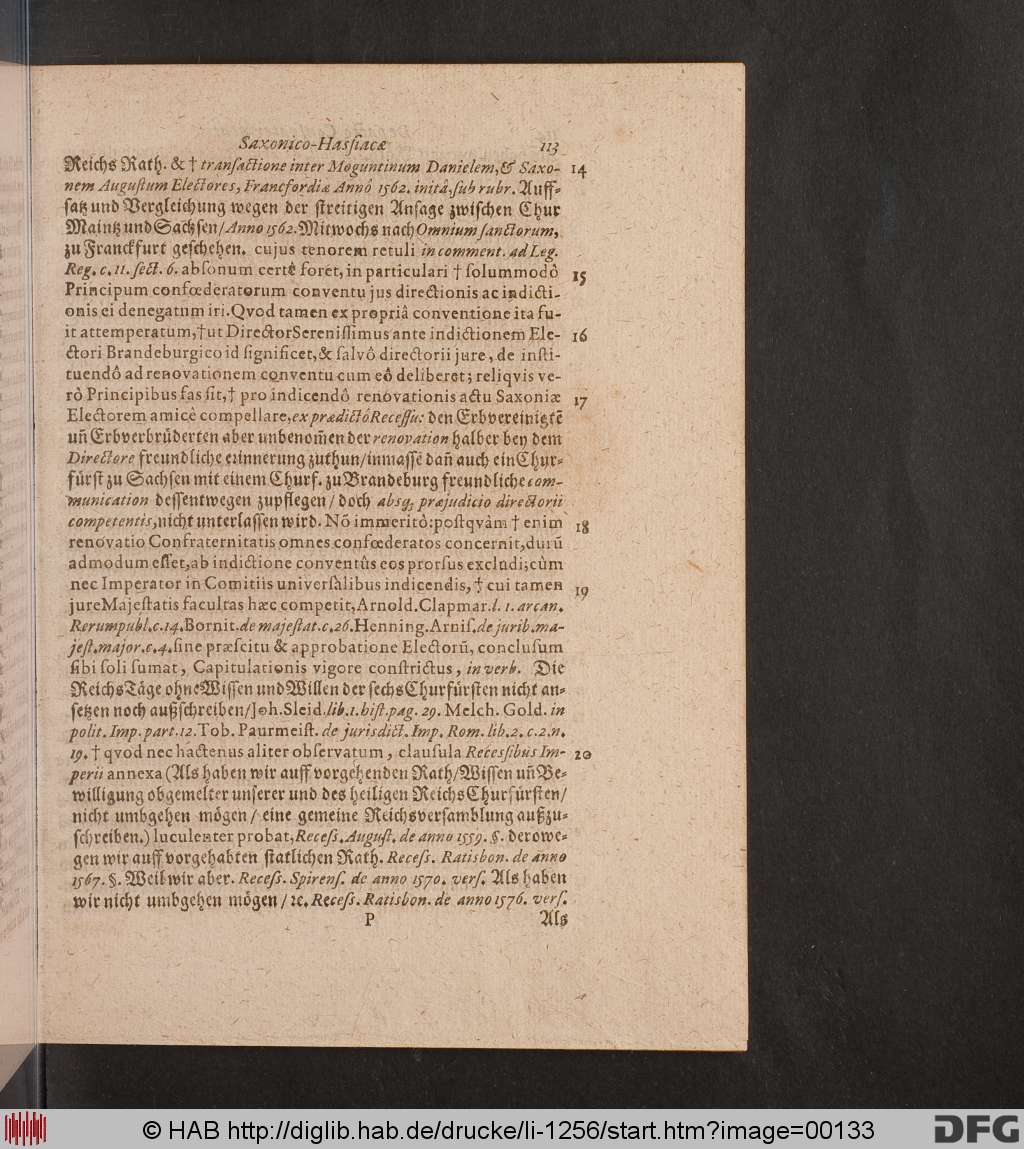 Saxonico-Hassiacæ 113
Reichs Rath. & † transactione inter Moguntinum Danielem, & Saxo- 14
nem Augustum Electores, Francfordiæ Annô 1562. initâ, sub rubr. Auff-
satz und Vergleichung wegen der streitigen Ansage zwischen Chur
Maintz und Sachsen / Anno 1562. Mitwochs nach Omnium sanctorum,
zu Franckfurt geschehen. cujus tenorem retuli in comment. ad Leg.
Reg. c. 11. sect. 6. absonum certê foret, in particulari † solummodô 15
Principum confœderatorum conventu jus directionis ac indicti-
onis ei denegatum iri. Qvod tamen ex propriâ conventione ita fu-
it attemperatum, † ut Director Serenissimus ante indictionem Ele- 16
ctori Brandeburgico id significet, & salvô directorii jure, de insti-
tuendô ad renovationem conventu cum eô deliberet; reliqvis ve-
rò Principibus fas sit, † pro indicendô renovationis actu Saxoniæ 17
Electorem amicè compellare, ex prædictô Recessu: den Erbvereinigtē
uñ Erbverbrüderten aber unbenom̃en der renovation halber bey dem
Directore freundliche erinnerung zuthun / inmassē dañ auch ein Chur-
fürst zu Sachsen mit einem Churf. zu Brandeburg freundliche com-
munication dessentwegen zupflegen / doch absq; præjudicio directorii
competentis, nicht unterlassen wird. Nō immeritò: postqvàm † enim 18
renovatio Confraternitatis omnes confœderatos concernit, durū
admodum esset, ab indictione conventûs eos prorsus excludi; cùm
nec Imperator in Comitiis universàlibus indicendis, † cui tamen 19
jure Majestatis facultas hæc competit, Arnold. Clapmar. l. 1. arcan.
Rerumpubl. c. 14. Bornit. de majestat. c. 26. Henning. Arnis. de jurib. ma-
jest. major. c. 4. sine præscitu & approbatione Electorū, conclusum
sibi soli sumat, Capitulationis vigore constrictus, in verb. Die
Reichs Täge ohne Wissen und Willen der sechs Churfürsten nicht an-
setzen noch außschreiben / Joh. Sleid. lib. 1. hist. pag. 29. Melch. Gold. in
polit. Imp. part. 12. Tob. Paurmeist. de jurisdict. Imp. Rom. lib. 2. c. 2. n.
19. † qvod nec hactenus aliter observatum, clausula Recessibus Im- 20
perii annexa (Als haben wir auff vorgehenden Rath / Wissen uñ Be-
willigung obgemelter unserer und des heiligen Reichs Churfürsten /
nicht umbgehen mögen / eine gemeine Reichsversamblung außzu-
schreiben.) luculenter probat, Recess. August. de anno 1559. §. derowe-
gen wir auff vorgehabten statlichen Rath. Recess. Ratisbon. de anno
1567. §. Weil wir aber. Recess. Spirens. de anno 1570. vers. Als haben
wir nicht umbgehen mögen / ꝛc. Recess. Ratisbon. de anno 1576. vers.
P Als
© HAB http://diglib.hab.de/drucke/li-1256/start.htm?image=00133
DFG